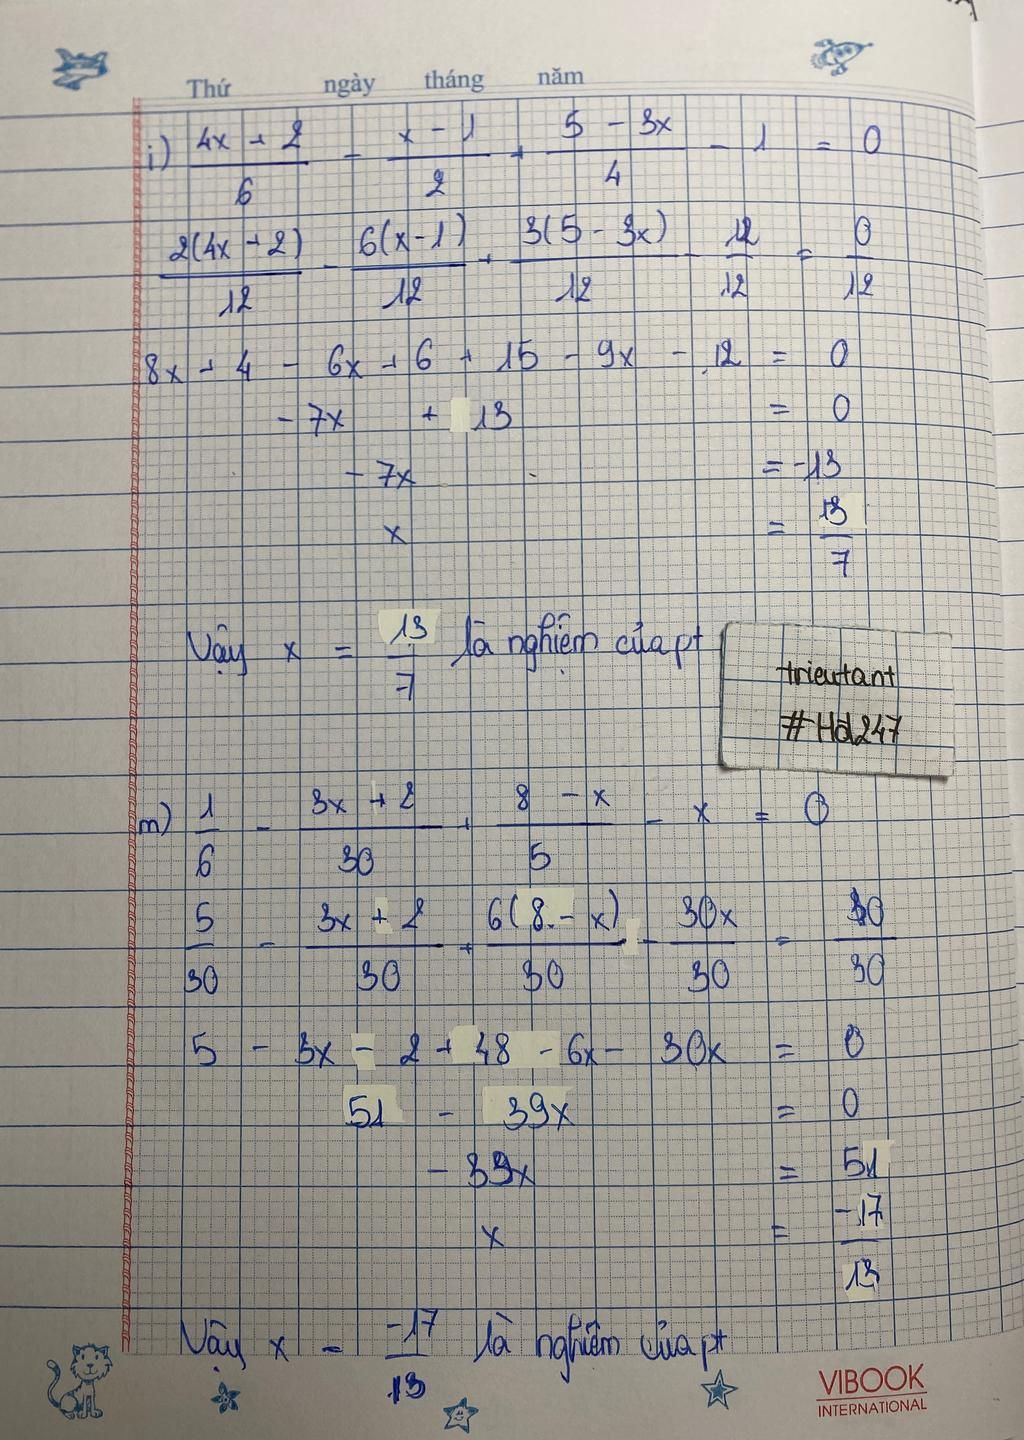 Thứ ngày tháng năm
i) (4x + 2)/6 - (x - 1)/2 + (5 - 3x)/4 - 1 = 0
2(4x + 2)/12 - 6(x - 1)/12 + 3(5 - 3x)/12 - 12/12 = 0/12
8x + 4 - 6x + 6 + 15 - 9x - 12 = 0
- 7x + 13 = 0
- 7x = -13
x = 13/7
Vậy x = 13/7 là nghiệm của pt
trieutant
#Hd247
m) 1/6 - (3x + 2)/30 + (8 - x)/5 - x = 0
5/30 - (3x + 2)/30 + 6(8 - x)/30 - 30x/30 = /30
5 - 3x - 2 + 48 - 6x - 30x = 0
51 - 39x = 0
- 39x = 51
x = -17/13
Vậy x = -17/13 là nghiệm của pt
VIBOOK
INTERNATIONAL